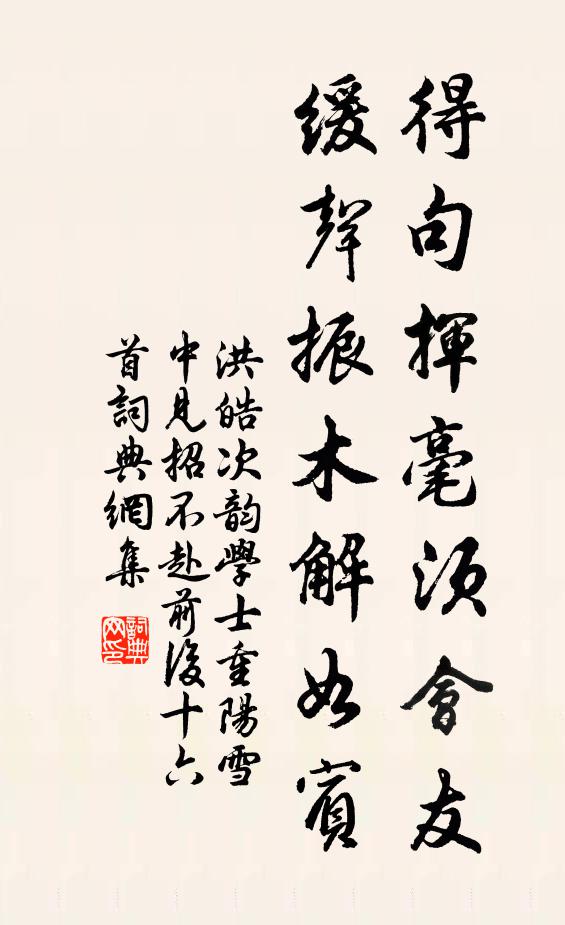 得句揮毫須會友
緩聲振木解如賓
洪皓次韵學士重陽雪
中見招不赴前後十六
首詞典網集
詞典網印